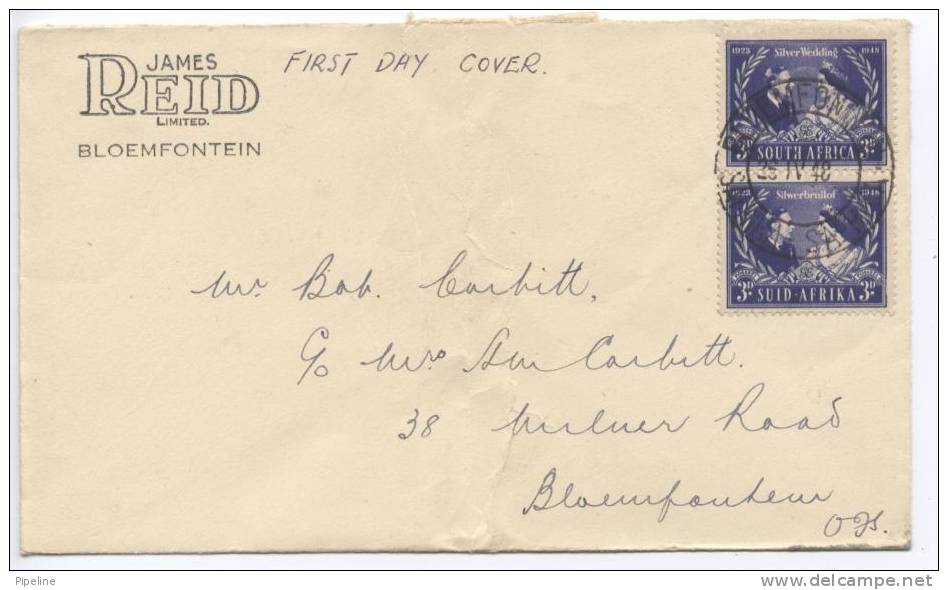 JAMES
REID
LIMITED.
BLOEMFONTEIN
FIRST DAY COVER.
1923 Silver Wedding 1948
POSTAGE
3D SOUTH AFRICA 3D
1923 Silwerbruilof 1948
3D SUID-AFRIKA 3D
IV 48
Mr. Bob. Corbitt,
c/o Mrs Corbitt.
38 Milner Road
Bloemfontein
OFS.
Pipeline
delcampe.net